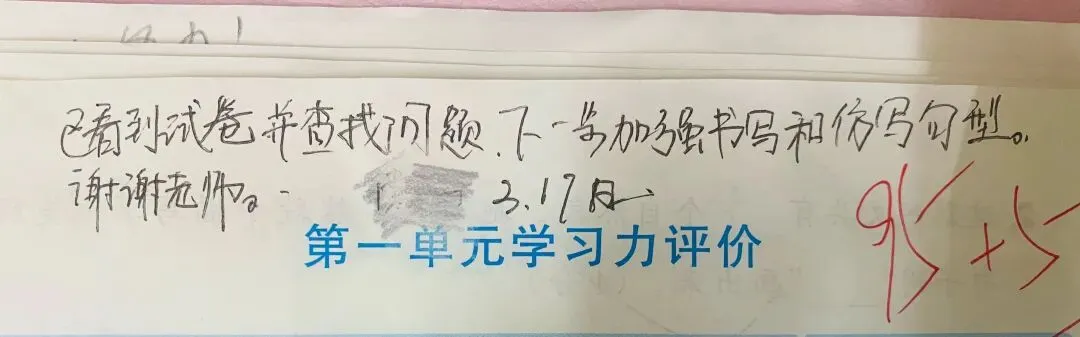 已看到试卷并查找问题.下一步加强书写和仿写句型。
谢谢老师。
3.17日
第一单元学习力评价
95+5